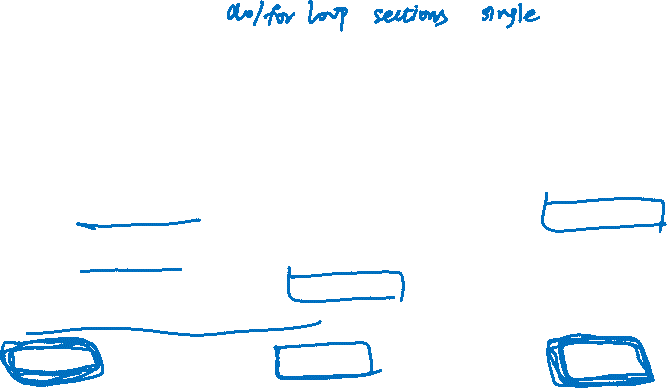 do/for loop sections single